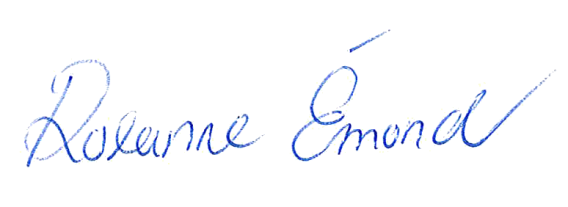 Roseanne Émond